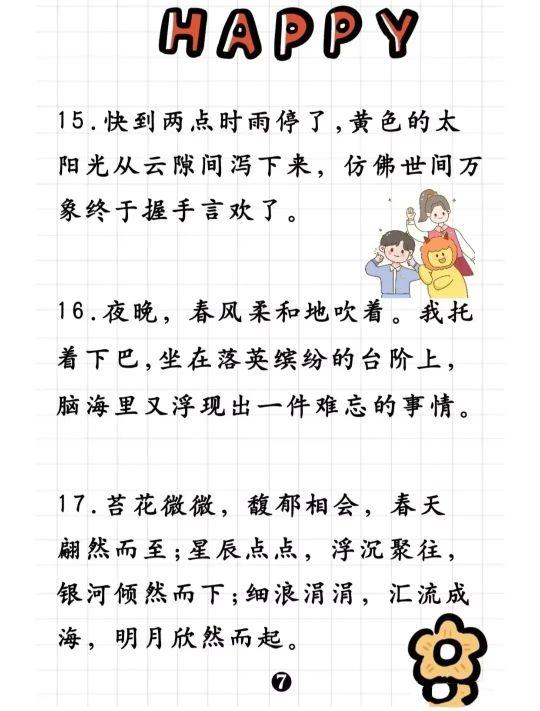 HAPPY
15.快到两点时雨停了,黄色的太
阳光从云隙间泻下来，仿佛世间万
象终于握手言欢了。
16.夜晚，春风柔和地吹着。我托
着下巴,坐在落英缤纷的台阶上，
脑海里又浮现出一件难忘的事情。
17.苔花微微，馥郁相会，春天
翩然而至;星辰点点，浮沉聚往，
银河倾然而下;细浪涓涓，汇流成
海，明月欣然而起。
7